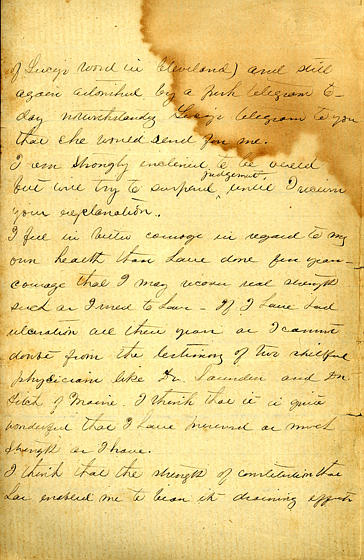 of Lucy's word in Cleveland) and still
again astonished by a fresh telegram to-
day notwithstanding Lucy's telegram to you
that she would send for me.
I am strongly inclined to be vexed
but will try to suspend judgement, until I receive
your explanation.
I feel in better courage in regard to my
own health than have done for years—
courage that I may recover real strength
such as I used to have - If I have had
ulceration all these years as I cannot
doubt from the testimony of two skilful
physicians like Dr. Saunders and Dr.
Fitch of Maine. I think that it is quite
wonderful that I have preserved as much
strength as I have.
I think that the strength of constitution that
has enabled me to bear it draining effects